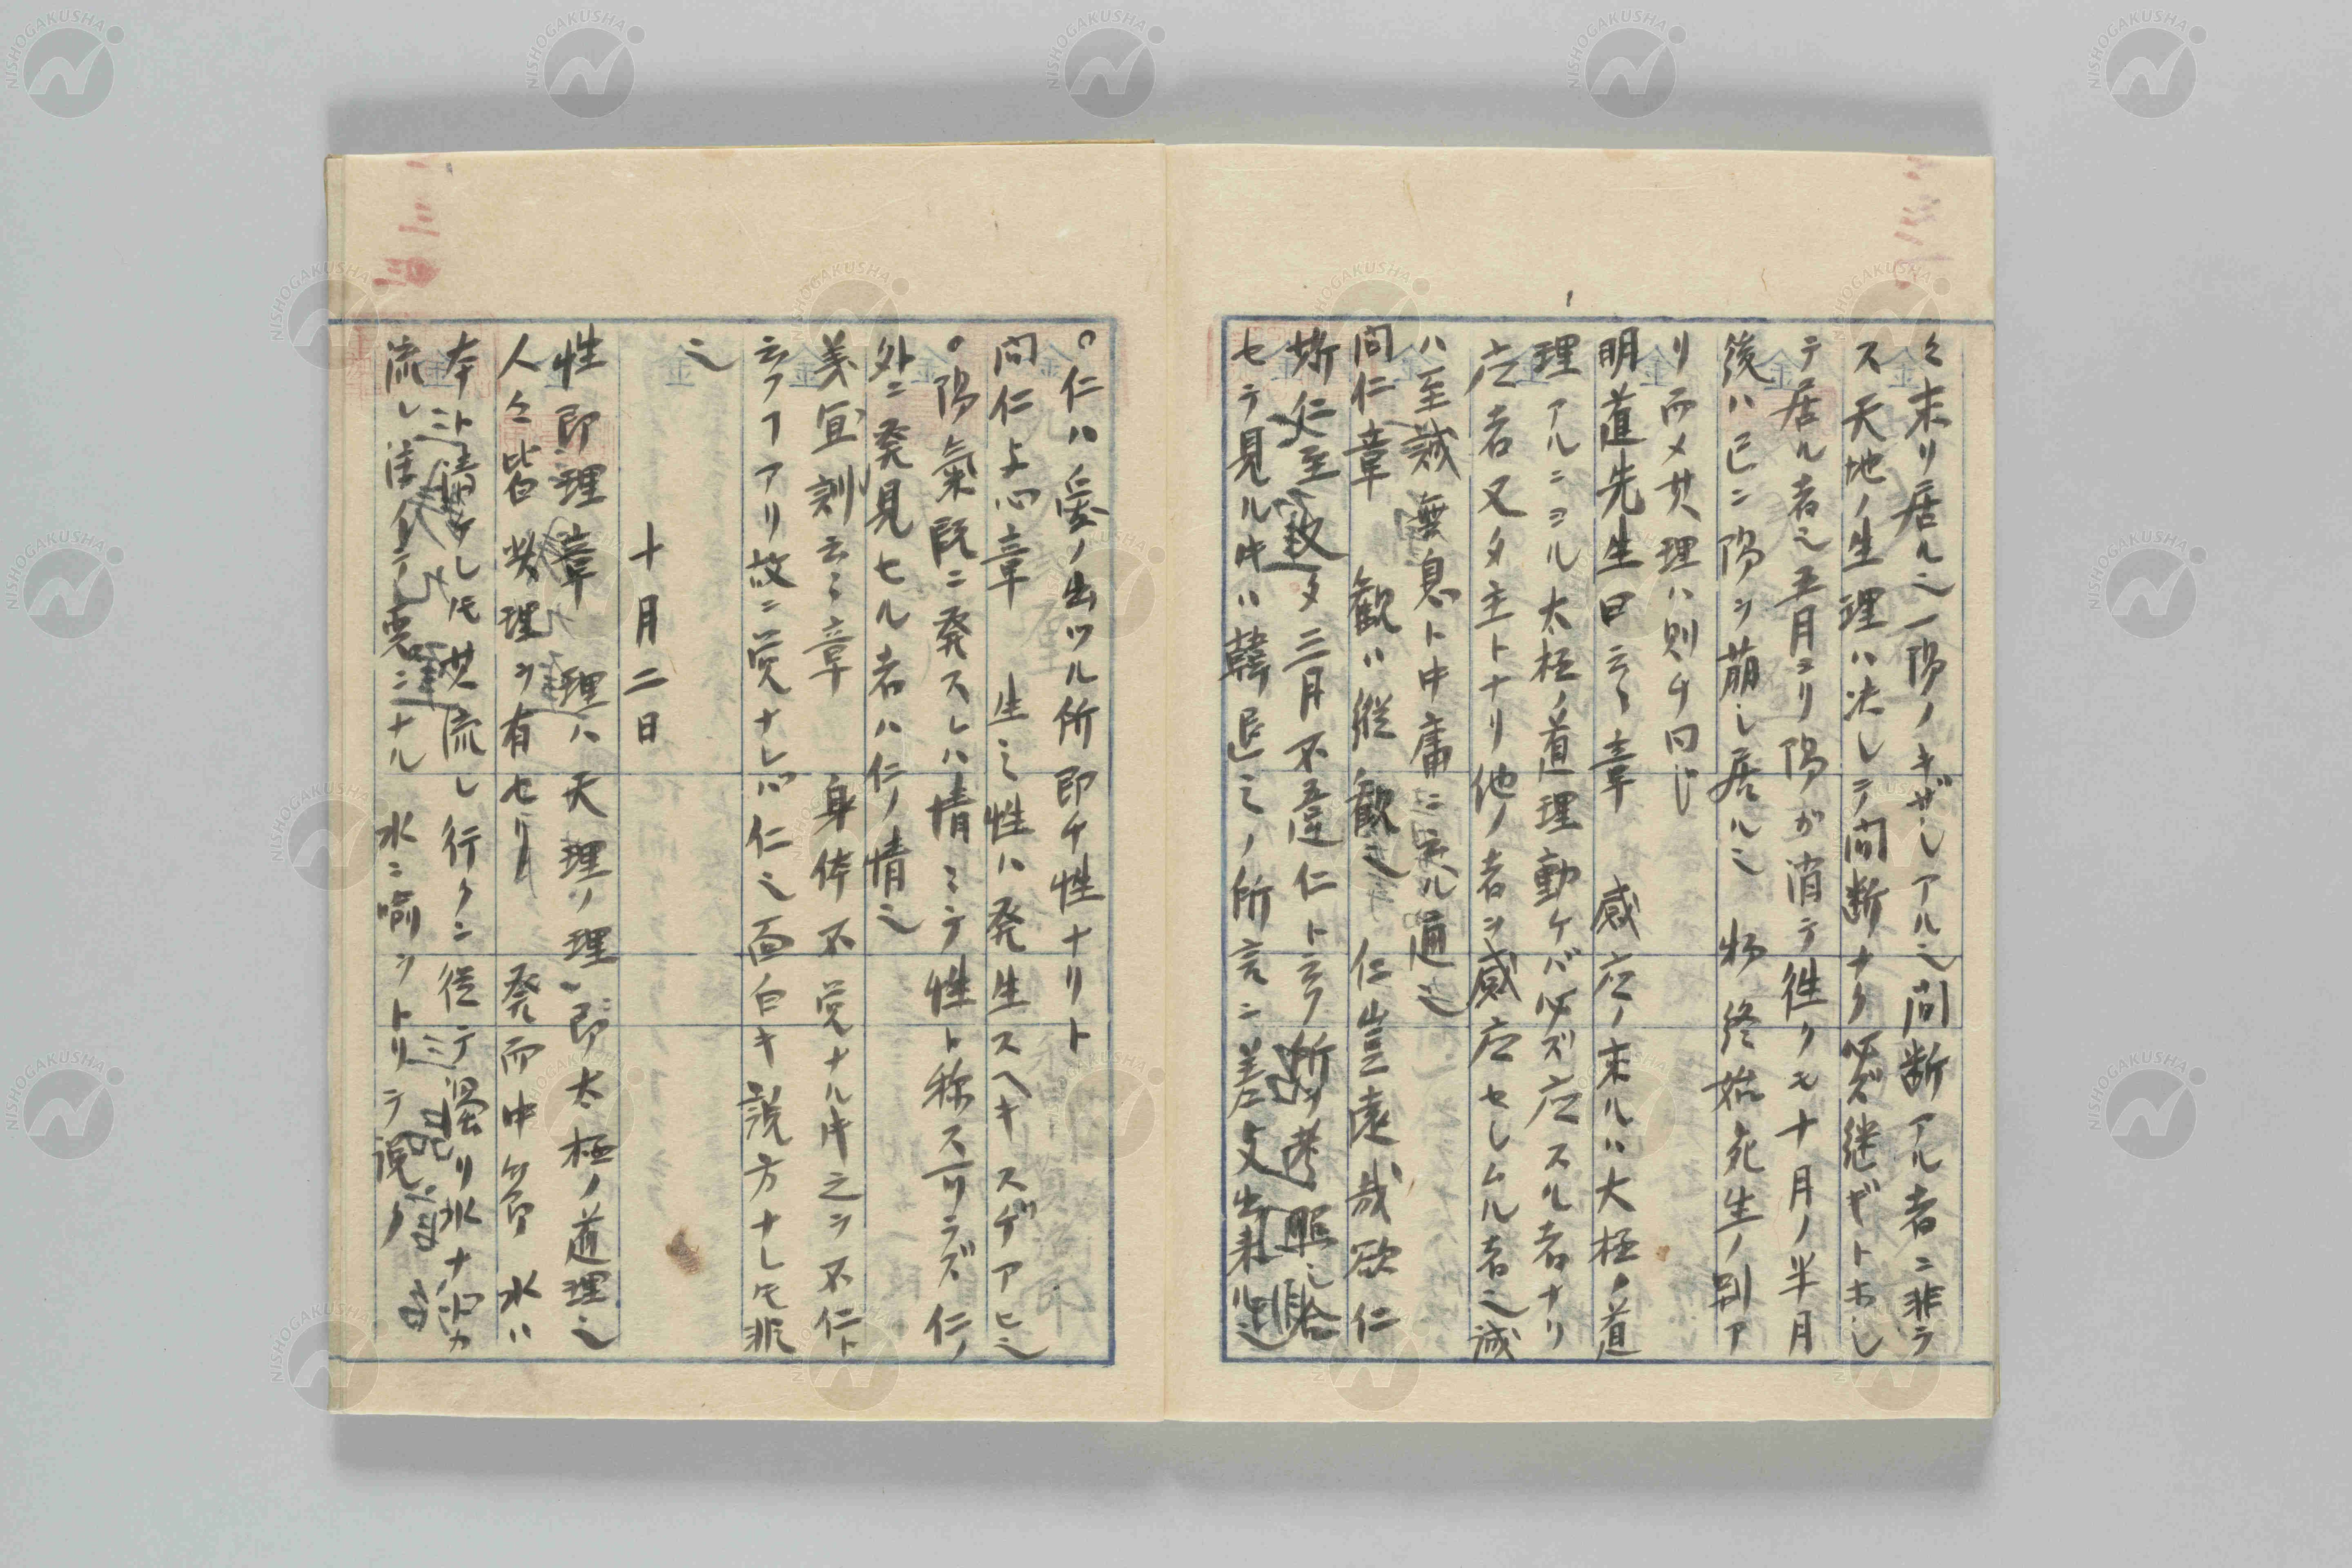 々来リ居ル也一陽ノキザシアル也間断アル者ニ非ラ
ス天地ノ生理ハ决シテ間断ナク必ズ継ギトホシ
テ居ル者也五月ヨリ陽ガ消テ徃クモ十月ノ半月
後ハ已ニ陽ヲ萠シ居ル也 物終始死生ノ別ア
リ而メ其理ハ則チ同じ
明道先生曰云々章 感应ノ来ルハ大極ノ道
理アルニヨル太極ノ道理動ケバ必ズ应スル者ナリ
应者又タ主トナリ他ノ者ヲ感应セシムル者也誠
ハ至誠無息ト中庸ニ云ル通也
問仁章 観ハ縦観也 仁豈遠哉欲仁
斯仁至 又タ三月不違仁ト云フ所ヲ考照シ
セテ見ル時ハ韓退之ノ所言ニ差文出来ル也
○仁ハ愛ノ出ツル所即チ性ナリト
問仁与心章 生之性ハ発生スヘキスヂアヒ也
○陽氣既ニ発スレハ情ミテ性ト称ス可ラズ仁ノ
外ニ発見セル者ハ仁ノ情也
義宜訓云々章 身体不覚ナル時之ヲ不仁ト
云フヿアリ故ニ覚ナレハ仁也面白キ説方ナレ𪜈非
也
十月二日
性即理章 理ハ天理ノ理即太極ノ道理也
人々皆其理ヲ有セリ 発而中節 水ハ
本ト清ナレ𪜈其流レ行クニ従テ濁リ水ナ
流レ 悪ニナル 水ニ喩ヲトリテ説ク